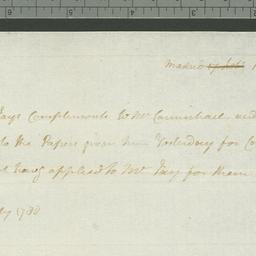 Madrid
Jays Compliments to Mr Carmichael and
to the Papers given him Yesterday for Co
applied to Mr Jay for them
1780